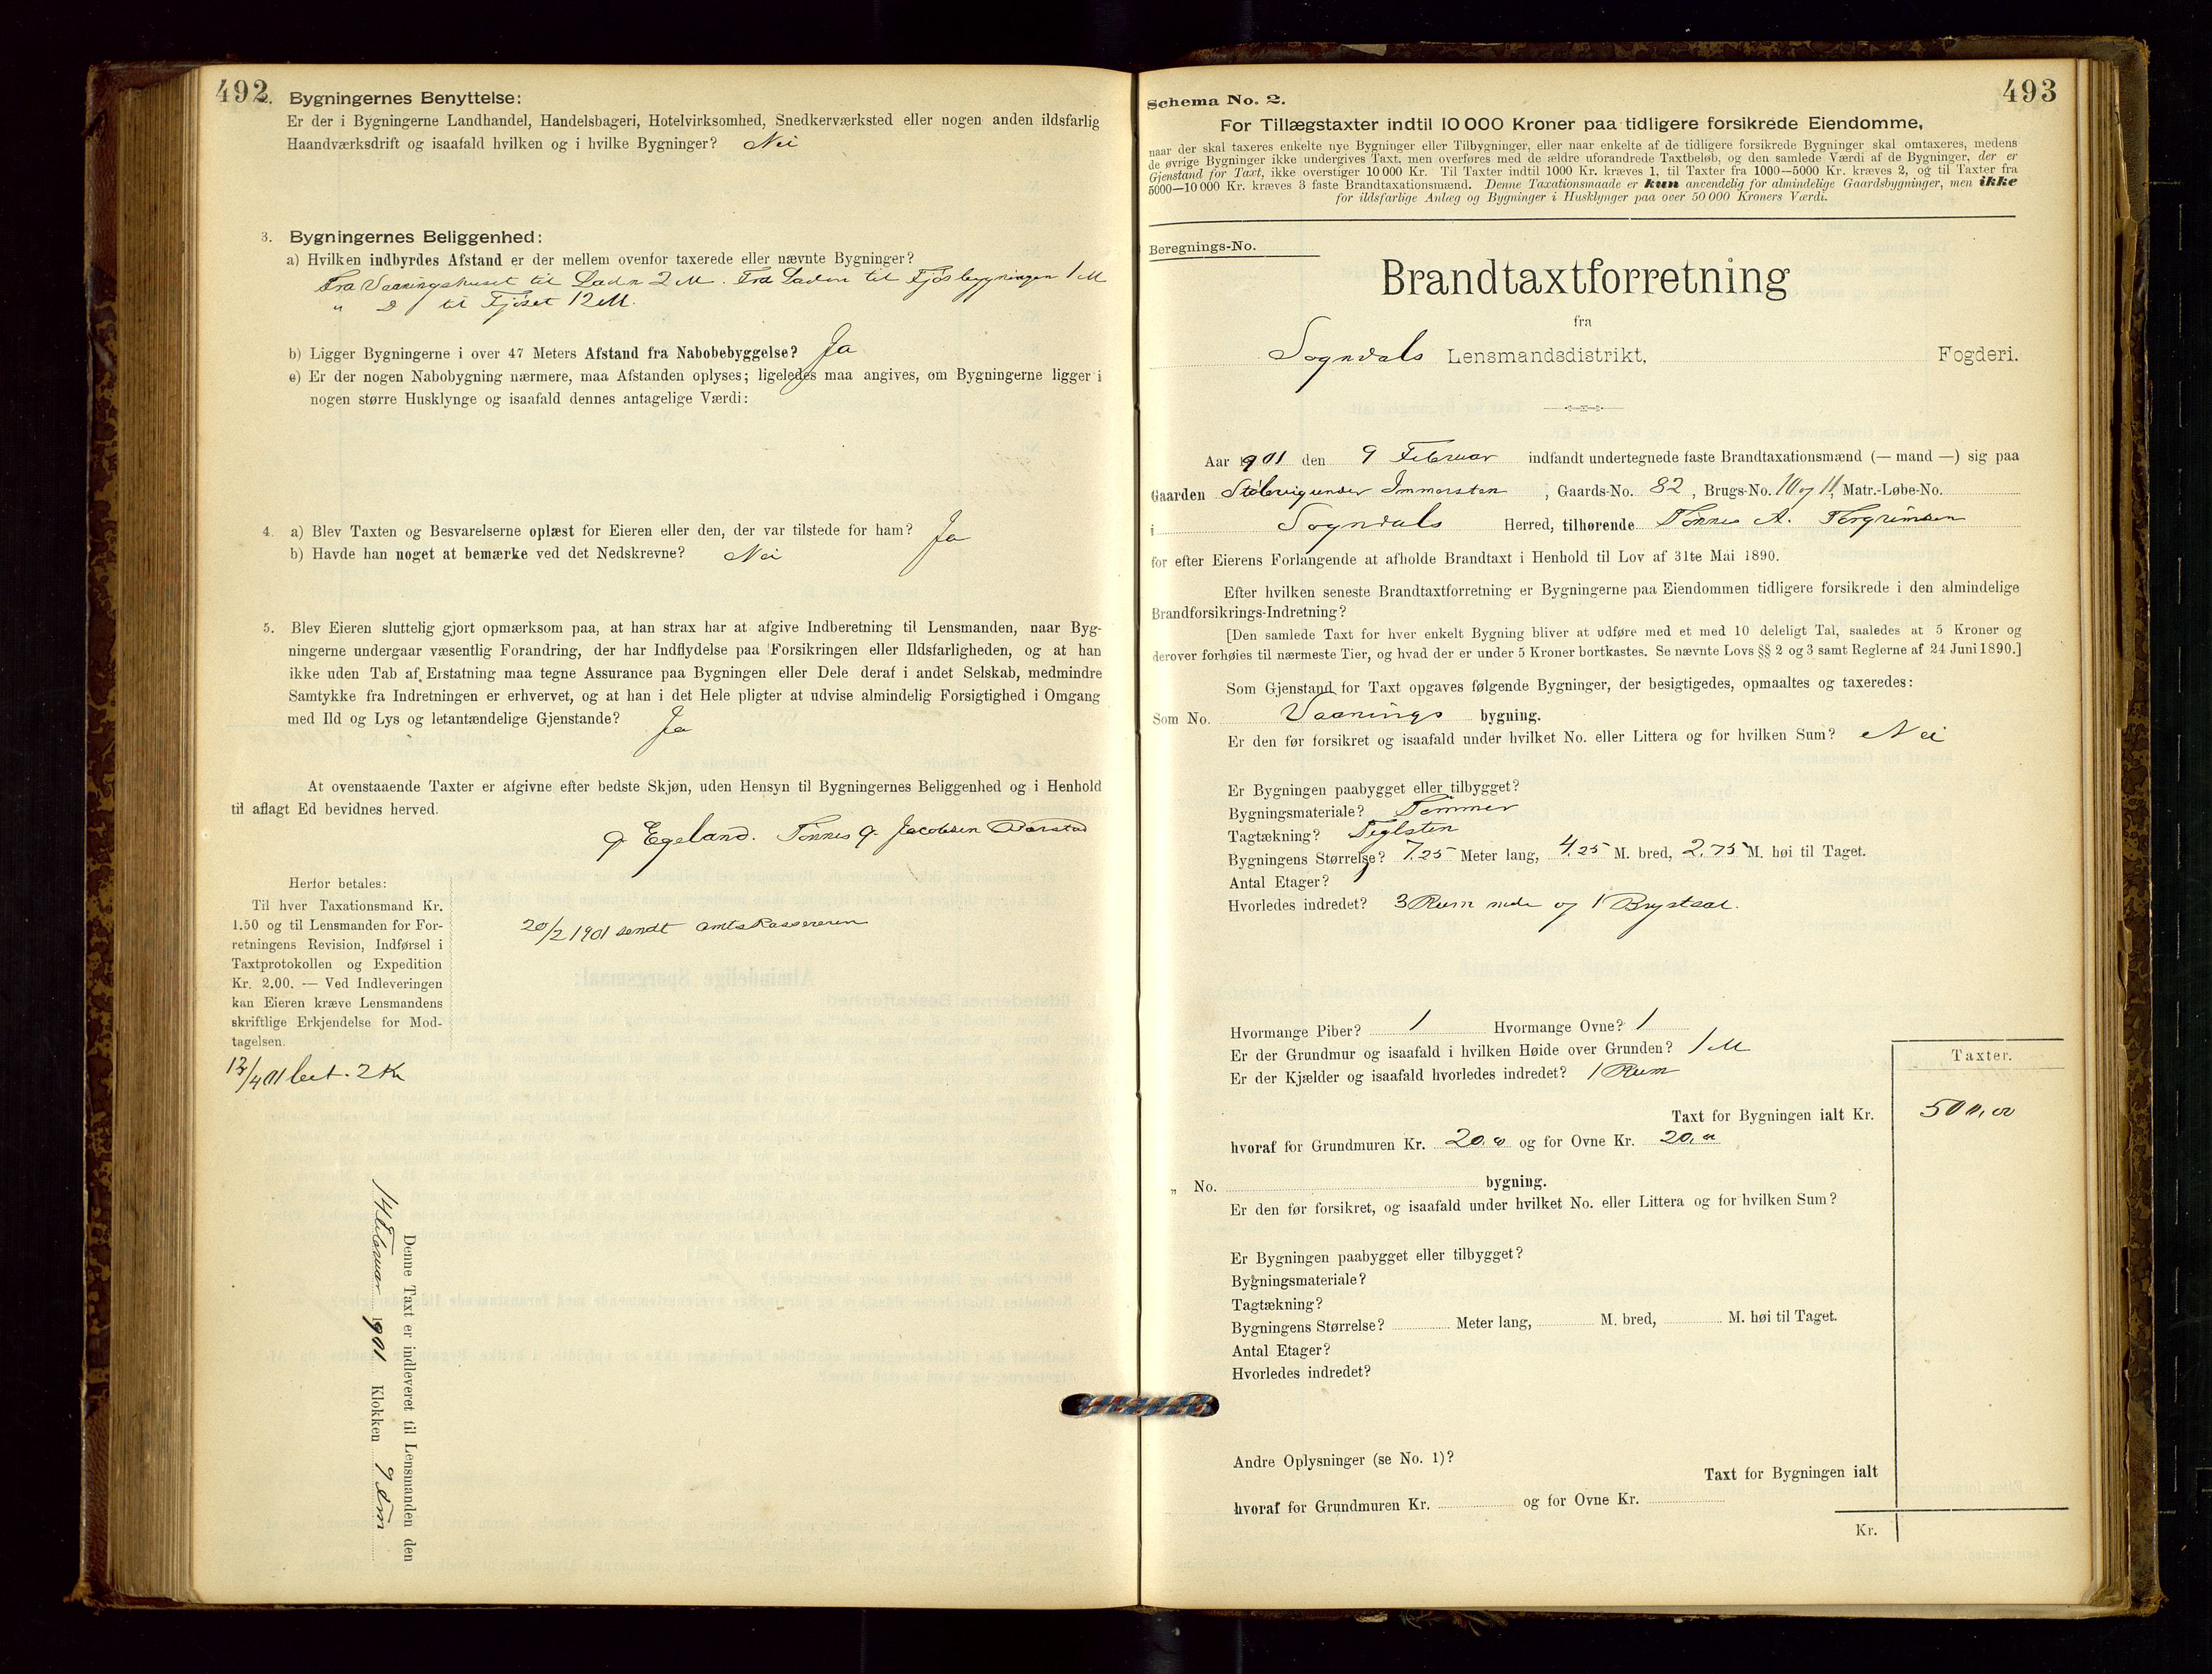 492
2. Bygningernes Benyttelse:
Er der i Bygningerne Landhandel, Handelsbageri, Hotelvirksomhed, Snedkerværksted eller nogen anden ildsfarlig
Haandværksdrift og isaafald hvilken og i hvilke Bygninger? Nei
3. Bygningernes Beliggenhed:
a) Hvilken indbyrdes Afstand er der mellem ovenfor taxerede eller nævnte Bygninger?
Fra Vaaningshuset til Ladn 2 M. Fra Laden til Fjøsbygningen 1 M
" D til Fjøset 12 M.
b) Ligger Bygningerne i over 47 Meters Afstand fra Nabobebyggelse? Ja
c) Er der nogen Nabobygning nærmere, maa Afstanden oplyses; ligeledes maa angives, om Bygningerne ligger i
nogen større Husklynge og isaafald dennes antagelige Værdi:
4. a) Blev Taxten og Besvarelserne oplæst for Eieren eller den, der var tilstede for ham? Ja
b) Havde han noget at bemærke ved det Nedskrevne? Nei
5. Blev Eieren sluttelig gjort opmærksom paa, at han strax har at afgive Indberetning til Lensmanden, naar Byg-
ningerne undergaar væsentlig Forandring, der har Indflydelse paa Forsikringen eller Ildsfarligheden, og at han
ikke uden Tab af Erstatning maa tegne Assurance paa Bygningen eller Dele deraf i andet Selskab, medmindre
Samtykke fra Indretningen er erhvervet, og at han i det Hele pligter at udvise almindelig Forsigtighed i Omgang
med Ild og Lys og letantændelige Gjenstande? Ja
At ovenstaaende Taxter er afgivne efter bedste Skjøn, uden Hensyn til Bygningernes Beliggenhed og i Henhold
til aflagt Ed bevidnes herved.
Egeland. Tønnes Jacobsen
Herfor betales:
Til hver Taxationsmand Kr.
1.50 og til Lensmanden for For-
retningens Revision, Indførsel i
Taxtprotokollen og Expedition
Kr. 2.00. — Ved Indleveringen
kan Eieren kræve Lensmandens
skriftlige Erkjendelse for Mod-
tagelsen.
20/2 1901 sendt amtskassereren
12/4 01 bet. 2 Kr
Denne Taxt er indleveret til Lensmanden den
14 Februar 1901 Klokken 9 Em
493
Schema No. 2.
For Tillægstaxter indtil 10 000 Kroner paa tidligere forsikrede Eiendomme,
naar der skal taxeres enkelte nye Bygninger eller Tilbygninger, eller naar enkelte af de tidligere forsikrede Bygninger skal omtaxeres, medens
de øvrige Bygninger ikke undergives Taxt, men overføres med de ældre uforandrede Taxtbeløb, og den samlede Værdi af de Bygninger, der er
Gjenstand for Taxt, ikke overstiger 10 000 Kr. Til Taxter indtil 1000 Kr. kræves 1, til Taxter fra 1000—5000 Kr. kræves 2, og til Taxter fra
5000—10 000 Kr. kræves 3 faste Brandtaxationsmænd. Denne Taxationsmaade er kun anvendelig for almindelige Gaardsbygninger, men ikke
for ildsfarlige Anlæg og Bygninger i Husklynger paa over 50 000 Kroners Værdi.
Beregnings-No.
Brandtaxtforretning
fra
Sogndals Lensmandsdistrikt, Fogderi.
Aar 1901 den 9 Februar indfandt undertegnede faste Brandtaxationsmænd (— mand —) sig paa
Gaarden Stølsvig under Immersten, Gaards-No. 82, Brugs-No. 10 og 11, Matr.-Løbe-No.
i Sogndals Herred, tilhørende Tønnes A. Torgrimsen
for efter Eierens Forlangende at afholde Brandtaxt i Henhold til Lov af 31te Mai 1890.
Efter hvilken seneste Brandtaxtforretning er Bygningerne paa Eiendommen tidligere forsikrede i den almindelige
Brandforsikrings-Indretning?
[Den samlede Taxt for hver enkelt Bygning bliver at udføre med et med 10 deleligt Tal, saaledes at 5 Kroner og
derover forhøies til nærmeste Tier, og hvad der er under 5 Kroner bortkastes. Se nævnte Lovs §§ 2 og 3 samt Reglerne af 24 Juni 1890.]
Som Gjenstand for Taxt opgaves følgende Bygninger, der besigtigedes, opmaaltes og taxeredes:
Som No. Vaanings bygning.
Er den før forsikret og isaafald under hvilket No. eller Littera og for hvilken Sum? Nei
Er Bygningen paabygget eller tilbygget?
Bygningsmateriale? Tømmer
Tagtækning? Teglsten
Bygningens Størrelse? 7.25 Meter lang, 4.25 M. bred, 2.75 M. høi til Taget.
Antal Etager? 1
Hvorledes indredet? 3 Rum nede og 1 Brystsal.
Hvormange Piber? 1 Hvormange Ovne? 1
Er der Grundmur og isaafald i hvilken Høide over Grunden? 1 M
Er der Kjælder og isaafald hvorledes indredet? 1 Rum
Taxter.
Taxt for Bygningen ialt Kr. 500,00
hvoraf for Grundmuren Kr. 20.00 og for Ovne Kr. 20.00
„ No. bygning.
Er den før forsikret, og isaafald under hvilket No. eller Littera og for hvilken Sum?
Er Bygningen paabygget eller tilbygget?
Bygningsmateriale?
Tagtækning?
Bygningens Størrelse? Meter lang, M. bred, M. høi til Taget.
Antal Etager?
Hvorledes indredet?
Andre Oplysninger (se No. 1)?
Taxt for Bygningen ialt
hvoraf for Grundmuren Kr. og for Ovne Kr.
Kr.